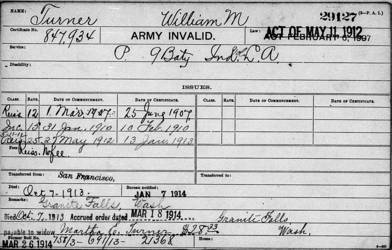 NAME: Turner William M 29127 (3-P. A. I.)
Certificate No. 847,934 ARMY INVALID. Law: ACT OF MAY 11, 1912.
ACT FEBRUARY 6, 1907
Service: P. 9 Baty Ind. L. A.
Disability:
ISSUES.
CLASS. RATE. DATE OF COMMENCEMENT. DATE OF CERTIFICATE. CLASS. RATE. DATE OF COMMENCEMENT. DATE OF CERTIFICATE.
Reiss 12 1 Mar. 1907. 25 June 1907.
Inc. 15 31 Jan. 1910 10 Feb. 1910
27 May 1912 13 Jan. 1913
Reiss. No fee
Transferred from San Francisco.
Died Oct. 7-1913. Bureau notified JAN 7 1914
Granite Falls, Wash
Died Oct. 7, 1913 Accrued order dated MAR 18 1914 Granite Falls,
payable to widow Martha E. Turner, Wash.
MAR 26 1914